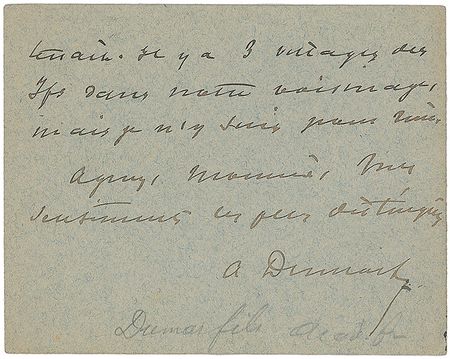 terrain. Il y a 3 villages des
Ifs dans notre voisinage,
mais je n'y suis pour rien.
Agréez, Monsieur, mes
sentiments les plus distingués
A Dumas f.
Dumas fils